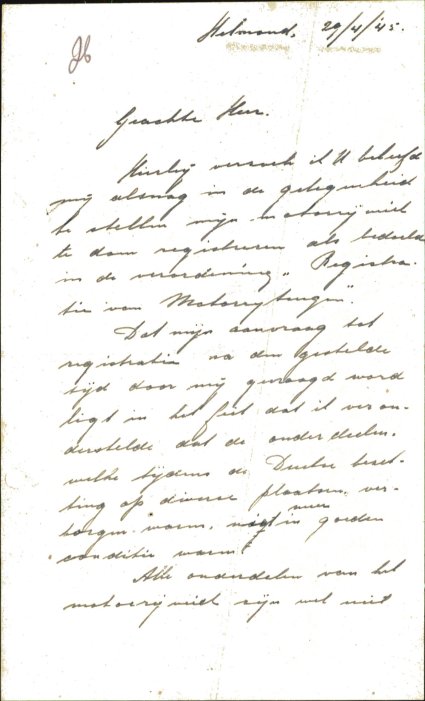 Helmond, 29/4/'45.
Geachte Heer.
Hierbij verzoek ik U beleefd
mij alsnog in de gelegenheid
te stellen mijn motorrijwiel
te doen registreren als bedoeld
in de verordening „ Registra-
tie van Motorrijtuigen".
Dat mijn aanvraag tot
registratie na den gestelde
tijd door mij gevraagd word
ligt in het feit dat ik veron-
derstelde dat de onderdeelen,
welke tijdens de Duitse bezet-
ting op diverse plaatsen, ver-
borgen waren, niet meer in goeden
conditie waren.
Alle onderdelen van het
motorrijwiel zijn wel niet